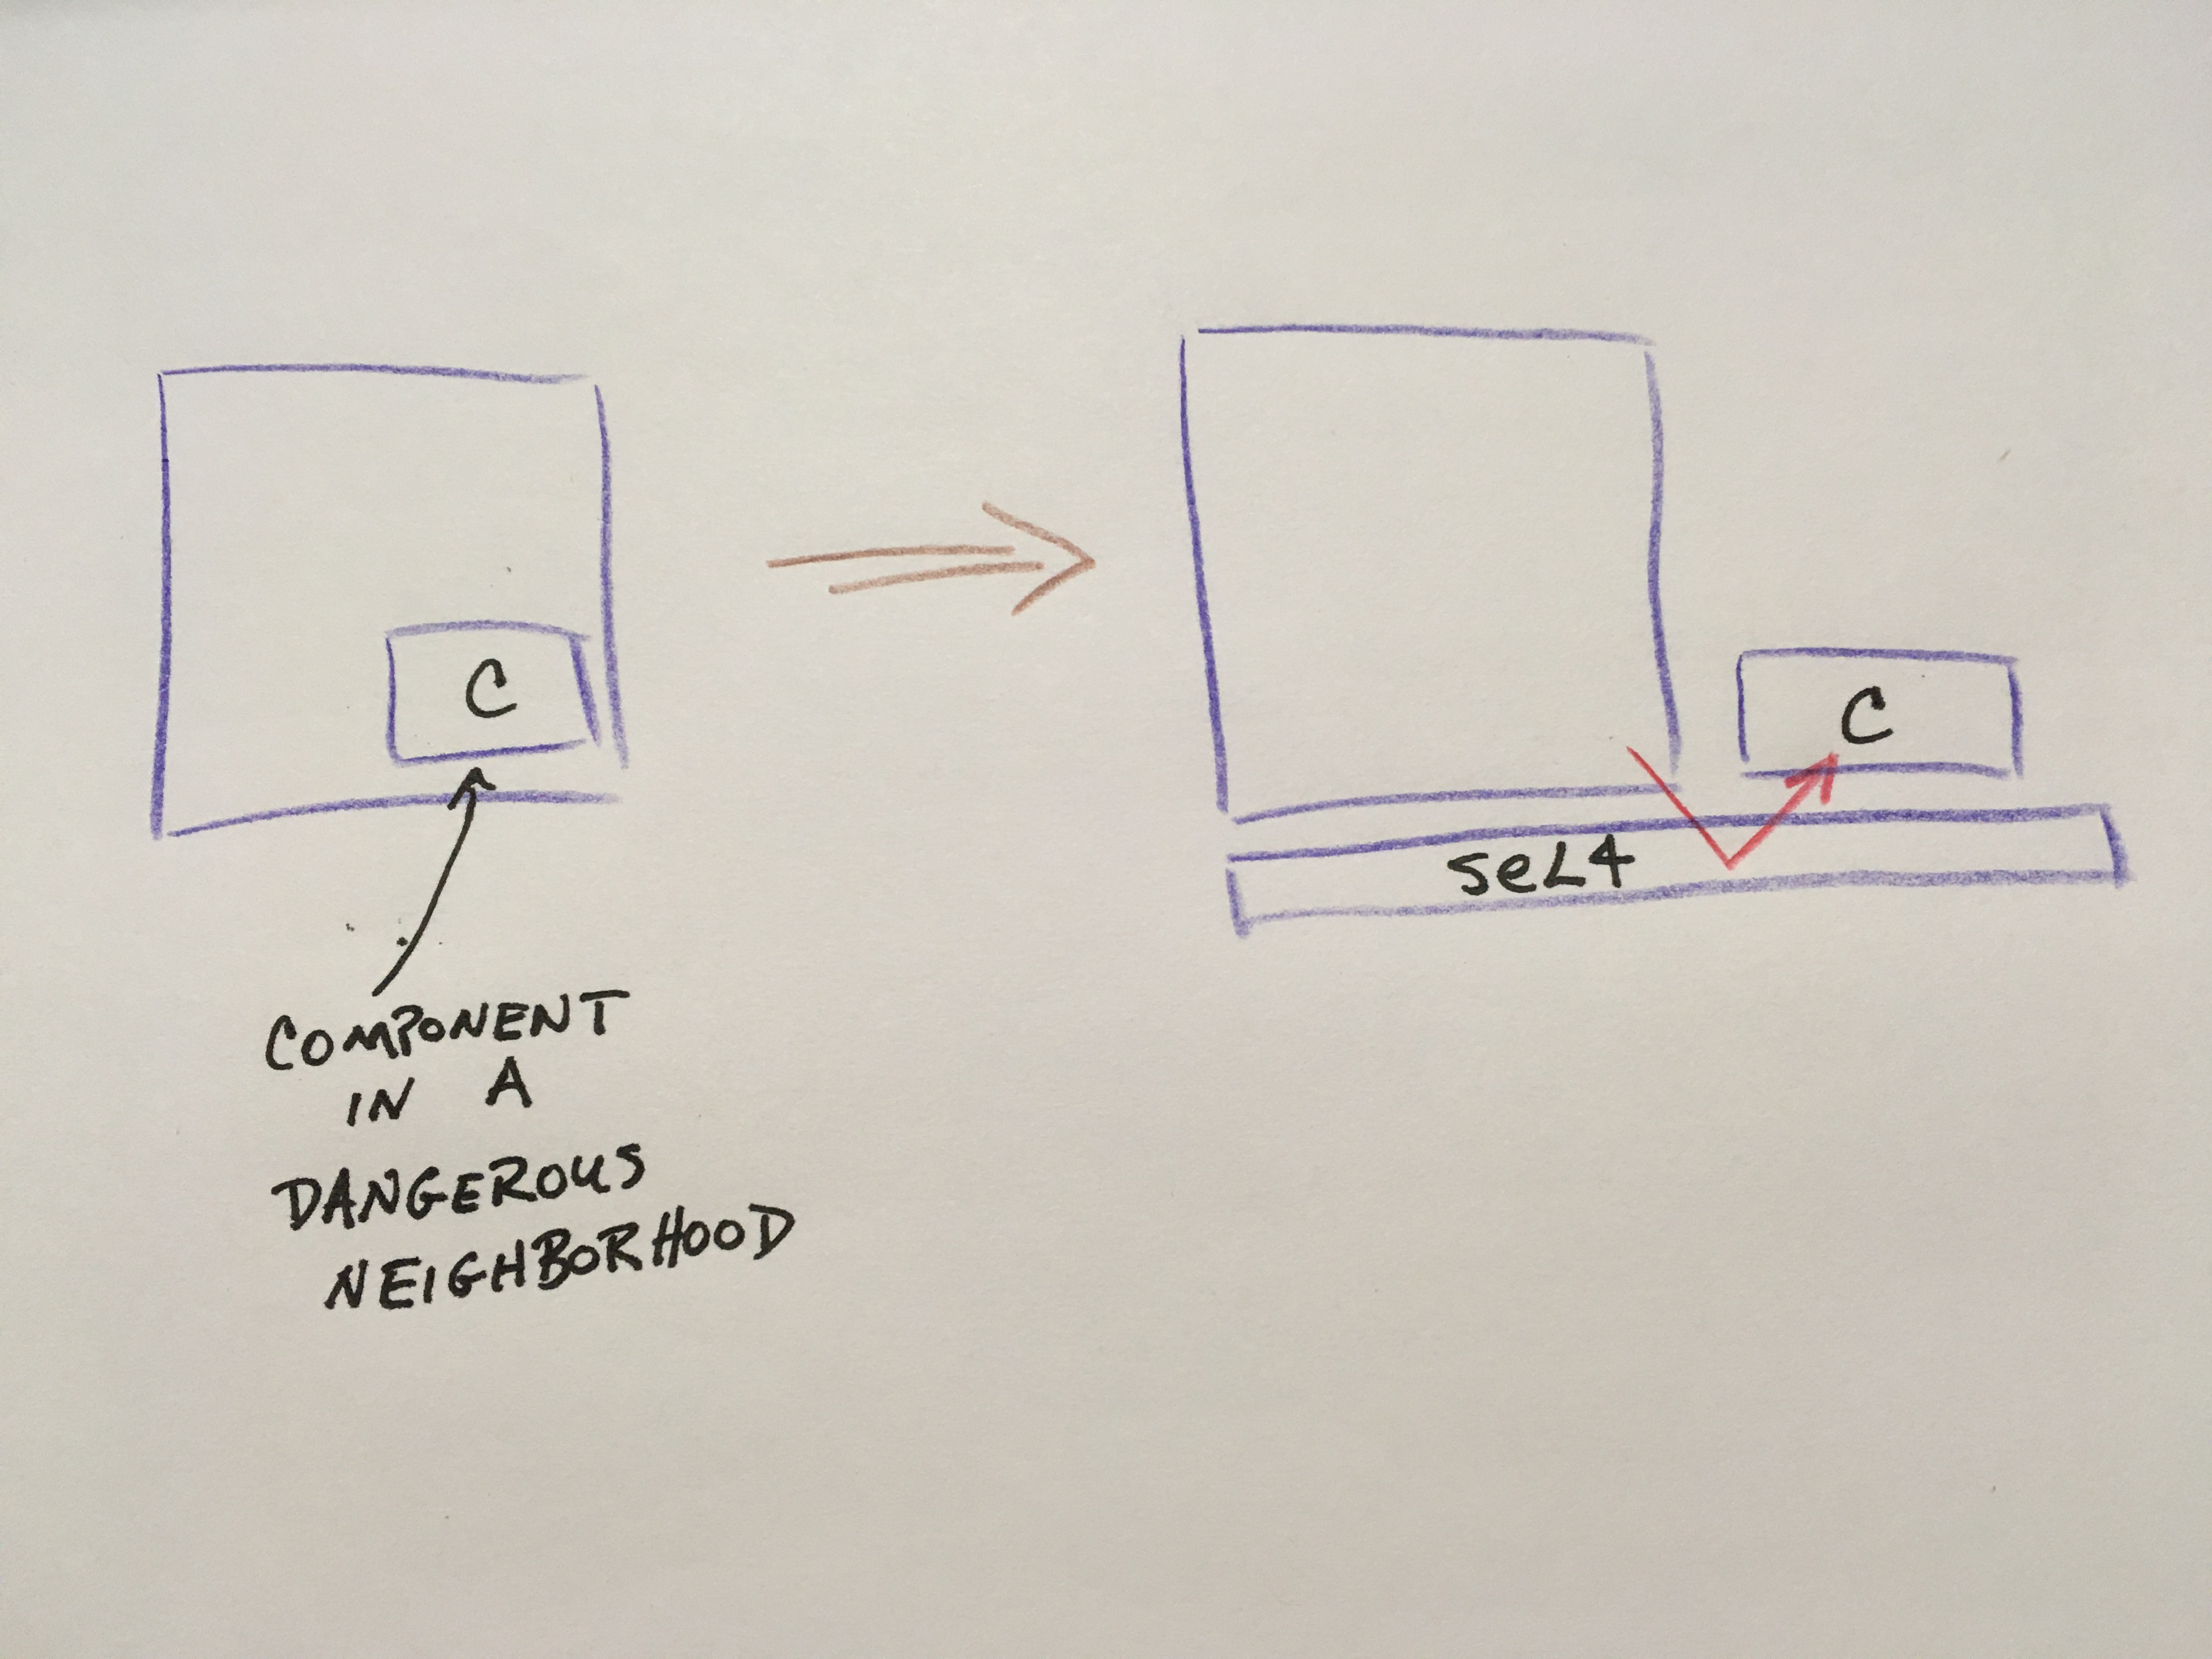 C
COMPONENT
IN A
DANGEROUS
NEIGHBORHOOD
C
seL4